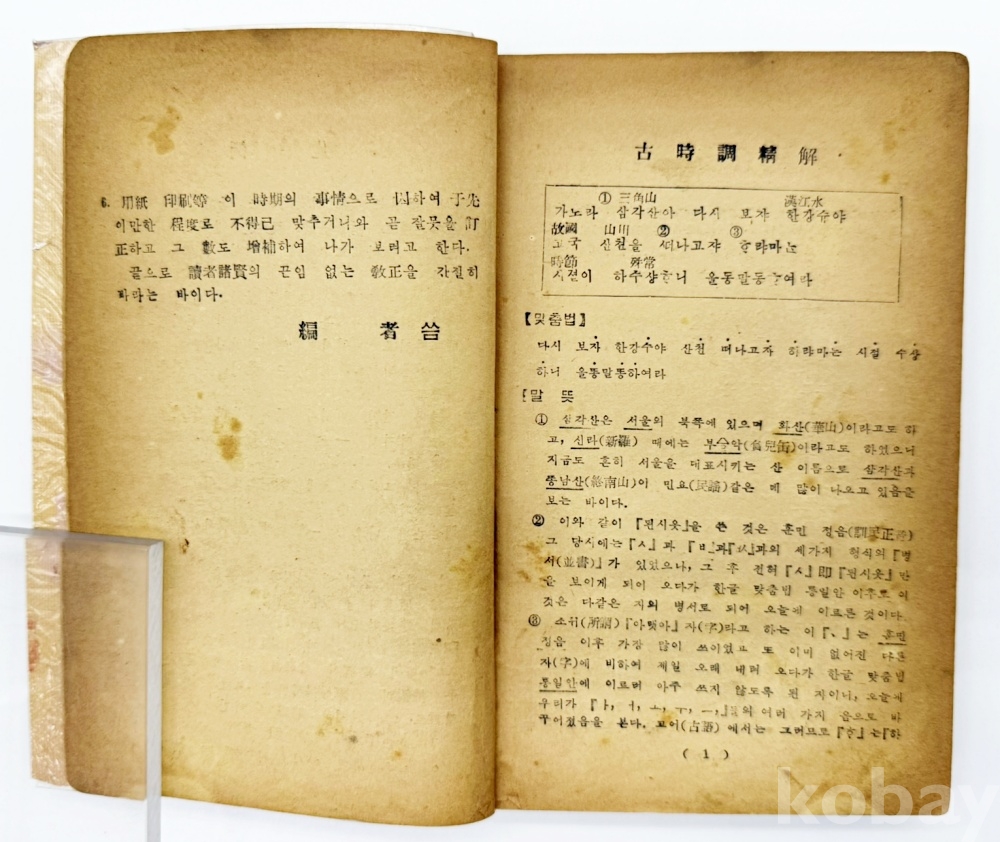 6. 用紙 印刷等 이 時期의 事情으로 因하여 于先
이만한 程度로 不得己 맞추거니와 곧 잘못을 訂
正하고 그 數도 增補하여 나가 보려고 한다.
끝으로 讀者諸賢의 끈임 없는 敎正을 간절히
바라는 바이다.
編 者 씀
古時調精解
① 三角山 漢江水
가노라 삼각산아 다시 보쟈 한강수야
故國 山川 ② ③
고국 산천을 떠나고쟈 랴마
時節 殊常
시졀이 하 수샹니 올동말동여라
【맞춤법】
다시 보자 한강수야 산천 떠나고자 하랴마는 시절 수상
하니 올동말동하여라
【말 뜻】
① 삼각산은 서울의 북쪽에 있으며 화산(華山)이라고도 하
고, 신라(新羅) 때에는 부아악(負兒岳)이라고도 하였으니
지금도 흔히 서울을 대표시키는 산 이름으로 삼각산과
종남산(終南山)이 민요(民謠)같은 데 많이 나오고 있음을
보는 바이다.
② 이와 같이 『된시옷』을 쓴 것은 훈민 정음(訓民正音)
그 당시에는 『ㅅ』과 『ㅂ』과 과의 세가지 형식의 『병
서(並書)』가 있었으나, 그 후 전혀 『ㅅ』即 『된시옷』만
을 보이게 되어 오다가 한글 맞춤법 통일안 이후로 이
것은 다같은 자의 병서로 되어 오늘에 이르른 것이다.
③ 소위(所謂) 『아랫아』 자(字)라고 하는 이 『、』는 훈민
정음 이후 가장 많이 쓰이었고 또 이미 없어진 다른
자(字)에 비하여 제일 오래 내려 오다가 한글 맞춤법
통일안에 이르러 아주 쓰지 않도록 된 자이니, 오늘에
우리가 『ㅏ, ㅓ, ㅗ, ㅜ, ㅡ, 』의 여러 가지 음으로 바
꾸어졌음을 본다. 고어(古語)에서는 그러므로 는 『하
( 1 )
kobay